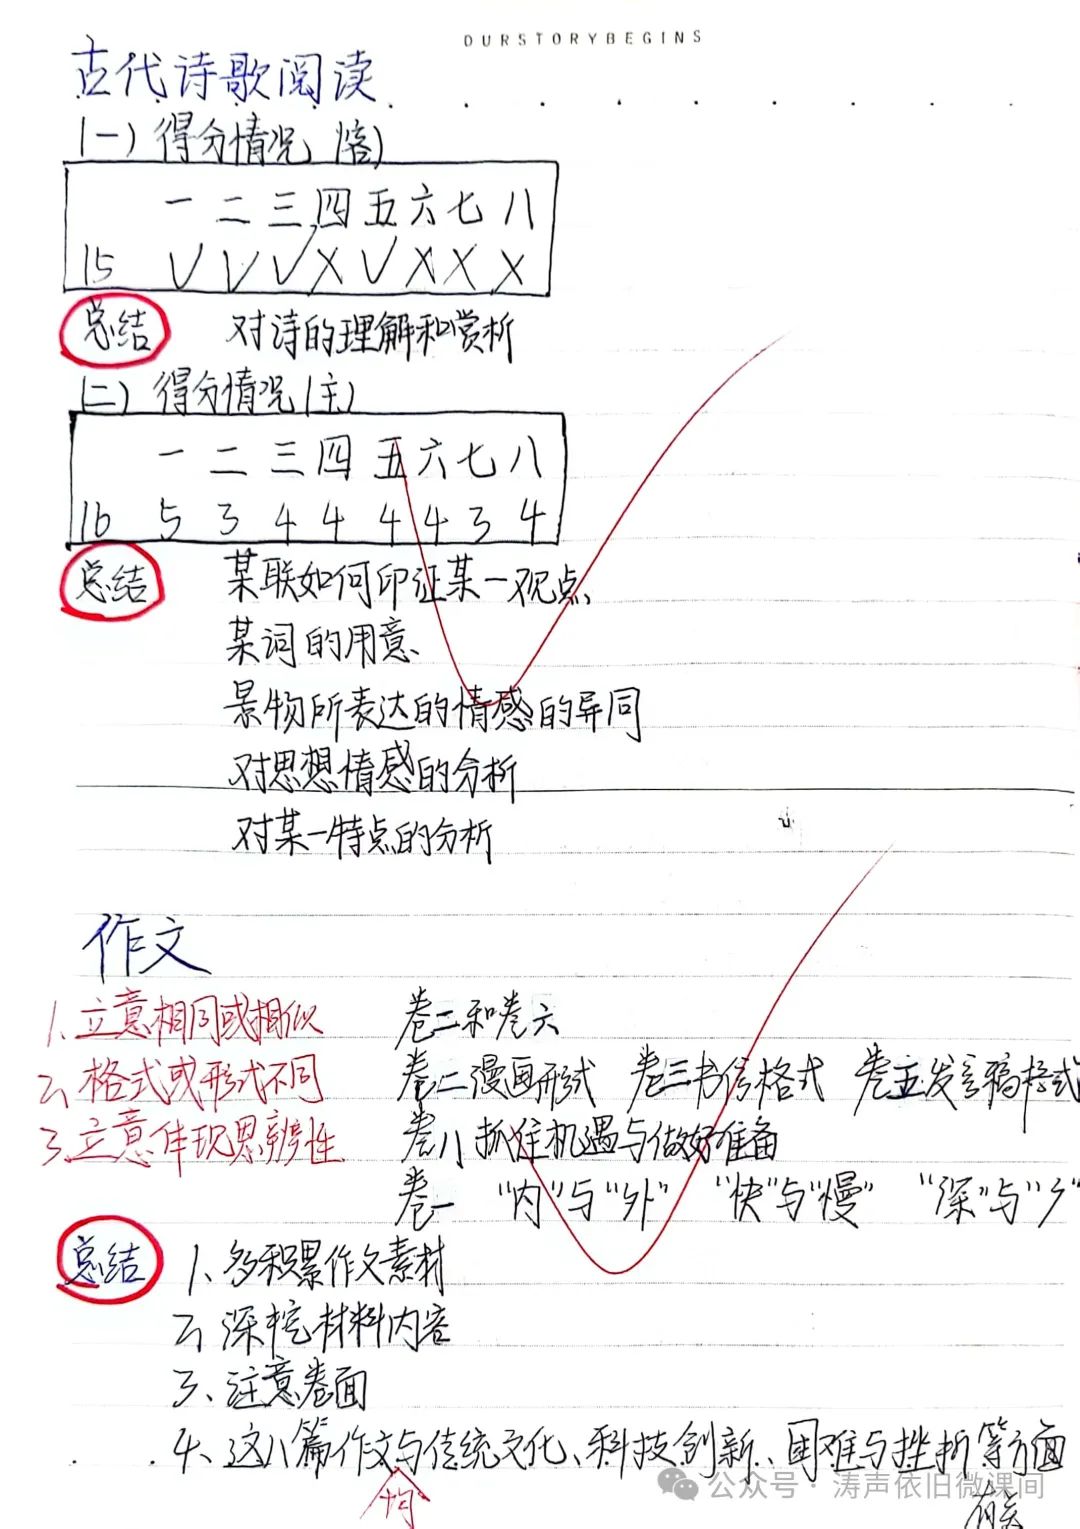 OURSTORYBEGINS
古代诗歌阅读
(一) 得分情况 (客)
一 二 三 四 五 六 七 八
15 √ √ √ × √ × × ×
总结 对诗的理解和赏析
(二) 得分情况 (主)
一 二 三 四 五 六 七 八
16 5 3 4 4 4 4 3 4
总结 某联如何印证某一观点、
某词的用意、
景物所表达的情感的异同
对思想情感的分析
对某一特点的分析
作文
1、立意相同或相似 卷二和卷六
2、格式或形式不同 卷二漫画形式 卷三书信格式 卷五发言稿格式
3、立意体现思辨性 卷八抓住机遇与做好准备
卷一 “内”与“外” “快”与“慢” “深”与
总结 1、多积累作文素材
2、深挖材料内容
3、注意卷面
4、这八篇作文均与传统文化、科技创新、困难与挫折等方面
有关
公众号·涛声依旧微课间